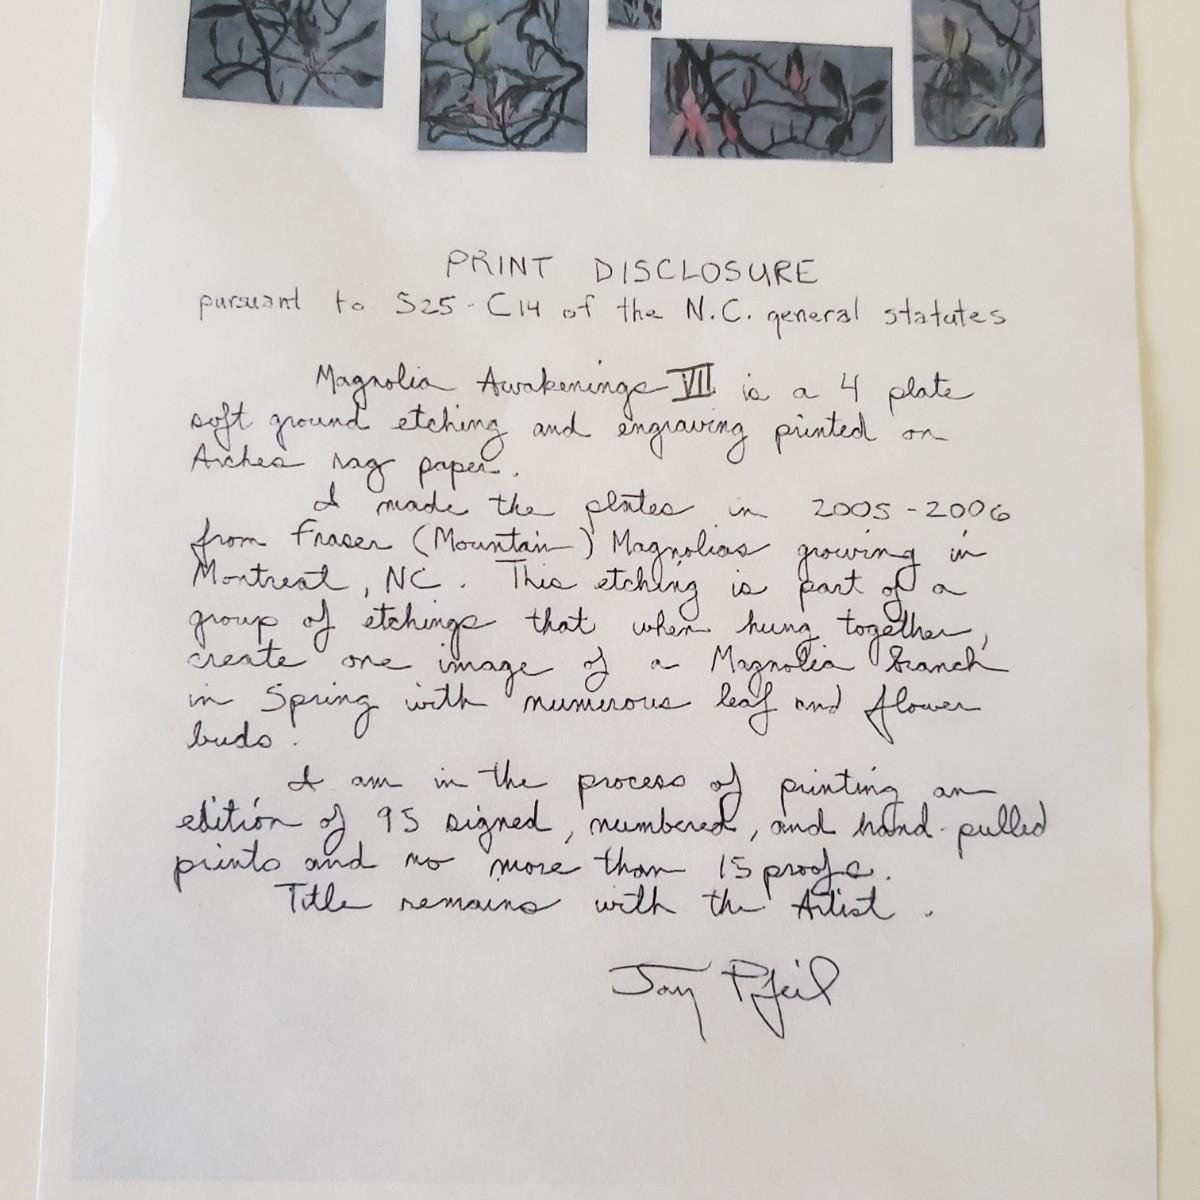 PRINT DISCLOSURE
pursuant to S25-C14 of the N.C. general statutes
Magnolia Awakenings VII is a 4 plate
soft ground etching and engraving printed on
Arches rag paper.
I made the plates in 2005-2006
from Fraser (Mountain) Magnolias growing in
Montreat, NC. This etching is part of a
group of etchings that when hung together,
create one image of a Magnolia branch
in Spring with numerous leaf and flower
buds.
I am in the process of printing an
edition of 95 signed, numbered, and hand-pulled
prints and no more than 15 proofs.
Title remains with the Artist.
Jay Pfeil